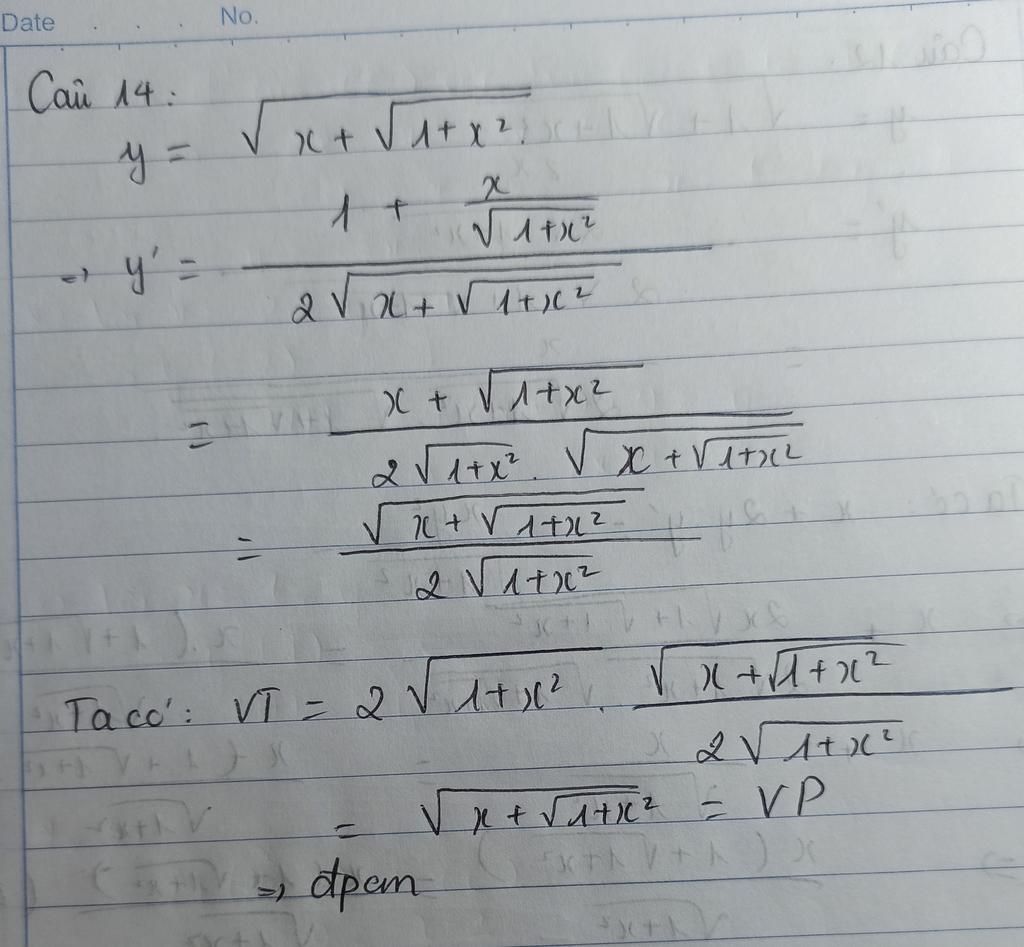 Date . . . No.
Câu 14:
y = √(x + √(1+x²))
→ y' = (1 + x/√(1+x²)) / (2√(x + √(1+x²)))
= (x + √(1+x²)) / (2√(1+x²) . √(x + √(1+x²)))
= √(x + √(1+x²)) / (2√(1+x²))
Ta có: VT = 2√(1+x²) . √(x + √(1+x²)) / (2√(1+x²))
= √(x + √(1+x²)) = VP
⇒ đpcm